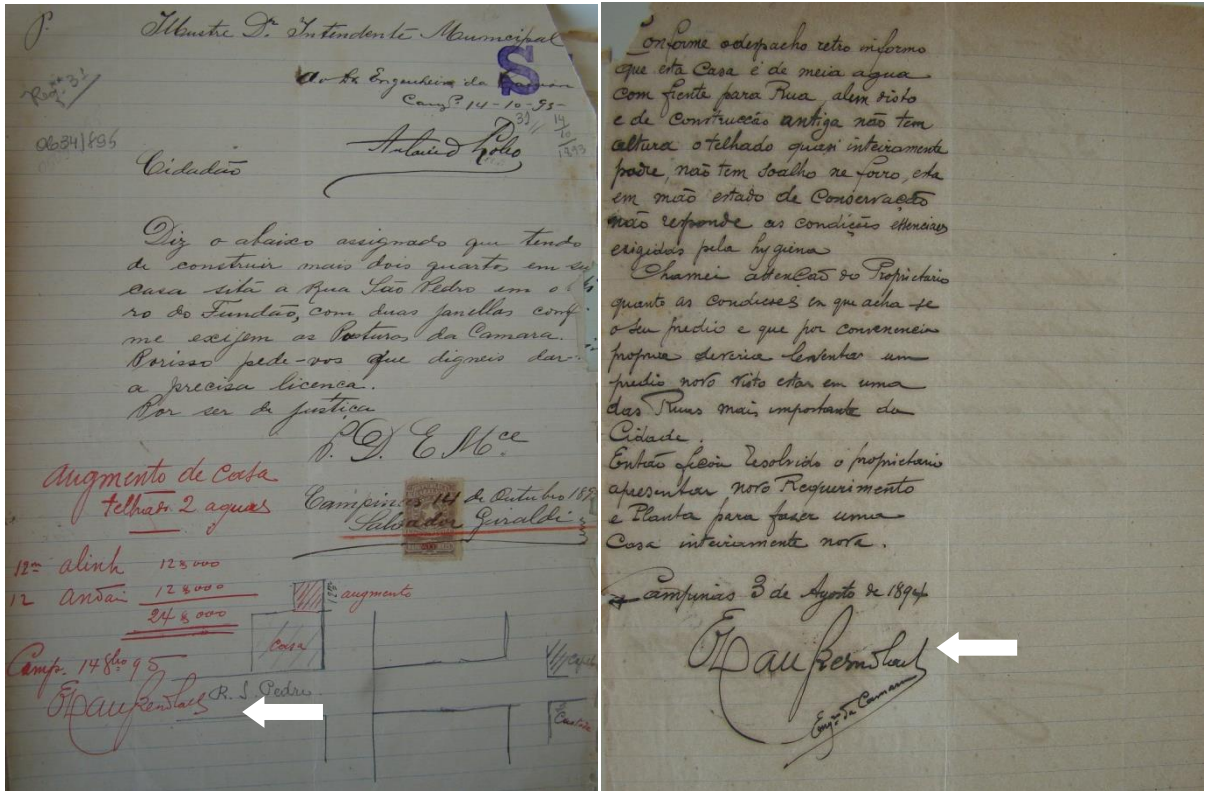 P.
Illustre Dr. Intendente Municipal
S
Ao Dr. Engenheiro da
Camp.s 14-10-95-
Reg.to 31
31
14
10
1893
0634/895
Antonio Lobo
Cidadão
Diz o abaixo assignado que tendo
de construir mais dois quartos em su
casa sitá a Rua São Pedro em o
ro do Fundão, com duas janellas conf
me exijem as Posturas da Camara.
Porisso pede-vos que digneis dar-
a precisa licença.
Por ser de justiça
P. D. E Mce
augmento de casa
telhas 2 aguas
Campinas 14 de Outubro 189
Salvador Giraldi
12m alinh 12$000
12 andai 12$000
24$000
augmento
casa
Camp. 14 8bro 95
R. S. Pedro
Conforme o despacho retro informo
que esta Casa é de meia agua
com frente para Rua, alem disto
e de Construcção antiga não tem
altura o telhado quasi inteiramente
podre, não tem soalho ne forro, esta
em máo estado de Conservação
não responde as condições essenciaes
exigidas pela hygiena
Chamei attenção do Proprietario
quanto as condicões en que acha-se
o seu predio e que por conveneneia
propria deveria levantar um
predio novo visto estar em uma
das Ruas mais importante da
Cidade.
Então ficou resolvido o proprietario
apresentar novo Requerimento
e Planta para faser uma
Casa inteiramente nova.
Campinas 3 de Agosto de 1894
Engo. da Camara